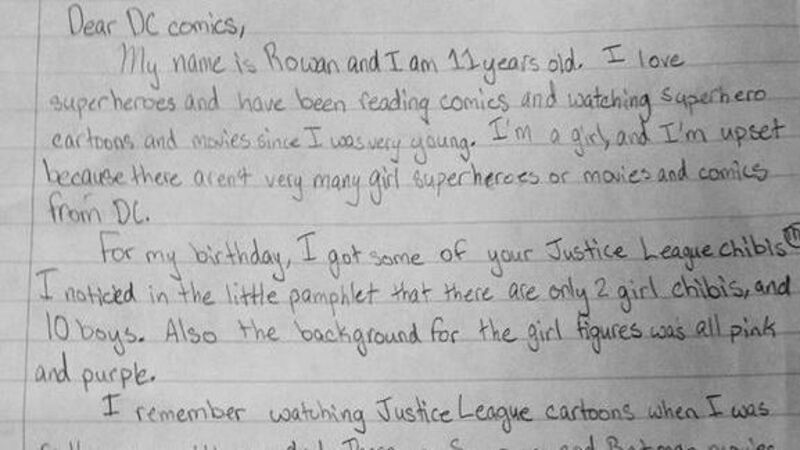 Dear DC comics,
My name is Rowan and I am 11 years old. I love
superheroes and have been reading comics and watching superhero
cartoons and movies since I was very young. I'm a girl, and I'm upset
because there aren't very many girl superheroes or movies and comics
from DC.
For my birthday, I got some of your Justice League chibis
I noticed in the little pamphlet that there are only 2 girl chibis, and
10 boys. Also the background for the girl figures was all pink
and purple.
I remember watching Justice League cartoons when I was
and Batman